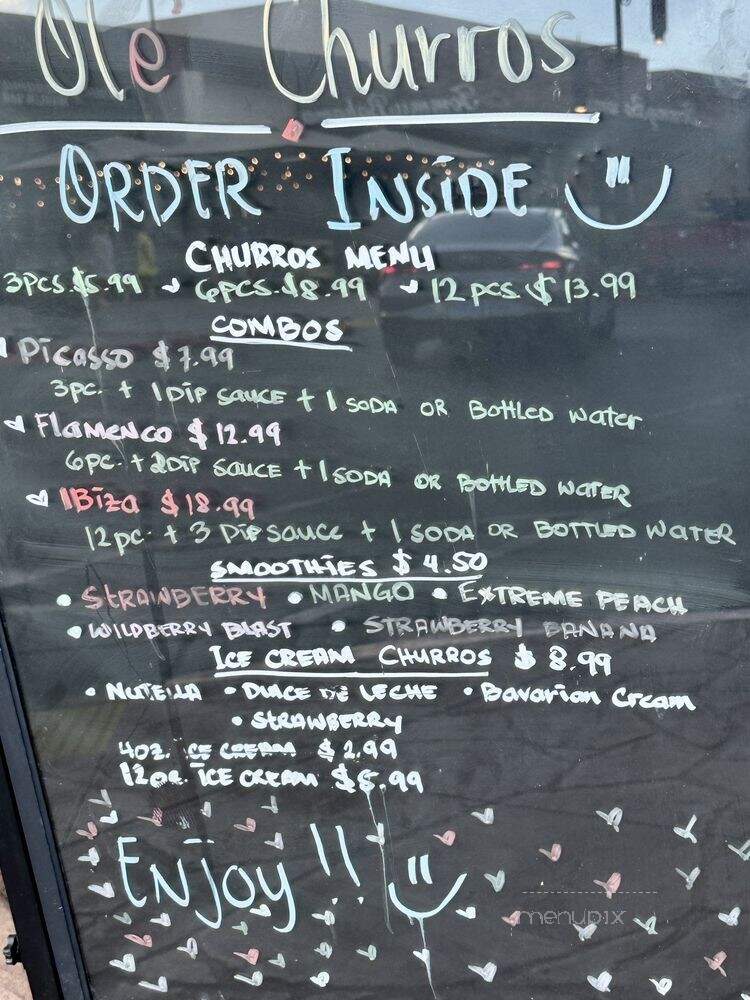 Olé Churros
ORDER INSIDE
CHURROS MENU
3PCS $5.99 6PCS $8.99 12 pcs $13.99
COMBOS
Picasso $7.99
3pc. + 1 DIP SAUCE + 1 SODA OR BOTTLED water
Flamenco $12.99
6pc. + 2 DIP SAUCE + 1 SODA OR BOTTLED WATER
IBiza $18.99
12pc. + 3 DIP SAUCE + 1 SODA OR BOTTLED WATER
SMOOTHIES $4.50
• STRAWBERRY • MANGO • EXTREME PEACH
• WILDBERRY BLAST • STRAWBERRY BANANA
ICE CREAM CHURROS $8.99
• NUTELLA • DULCE DE LECHE • Bavarian Cream
• STRAWBERRY
4oz. ICE CREAM $2.99
12oz. ICE CREAM $6.99
ENJOY!!
menupix